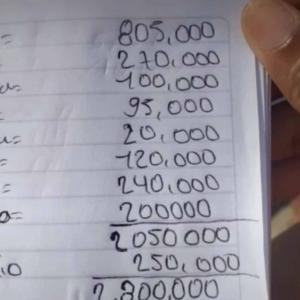 = 805,000
270,000
= 100,000
95,000
= 20,000
= 120,000
= 240,000
= 200000
2050000
250,000